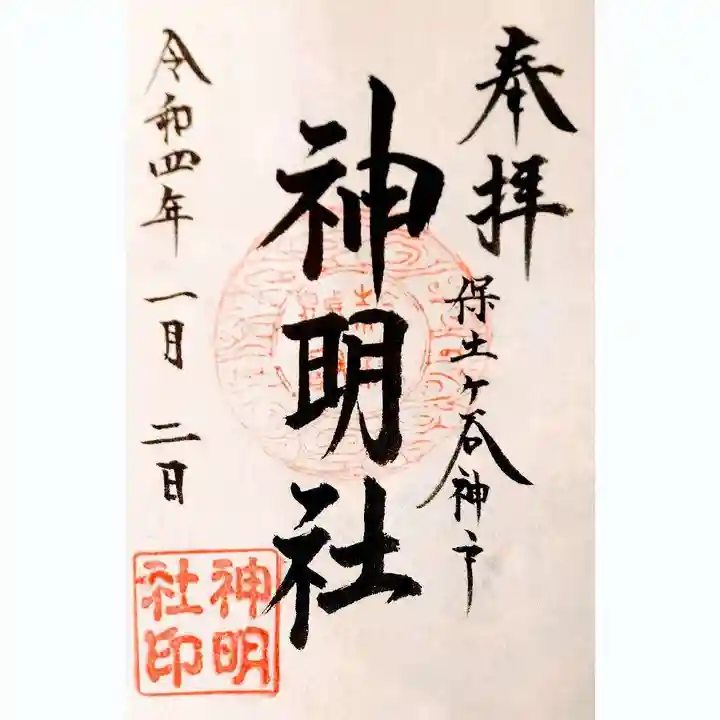 奉拝
保土ヶ谷神戸
神明社
令和四年 一月 二日
神明
社印